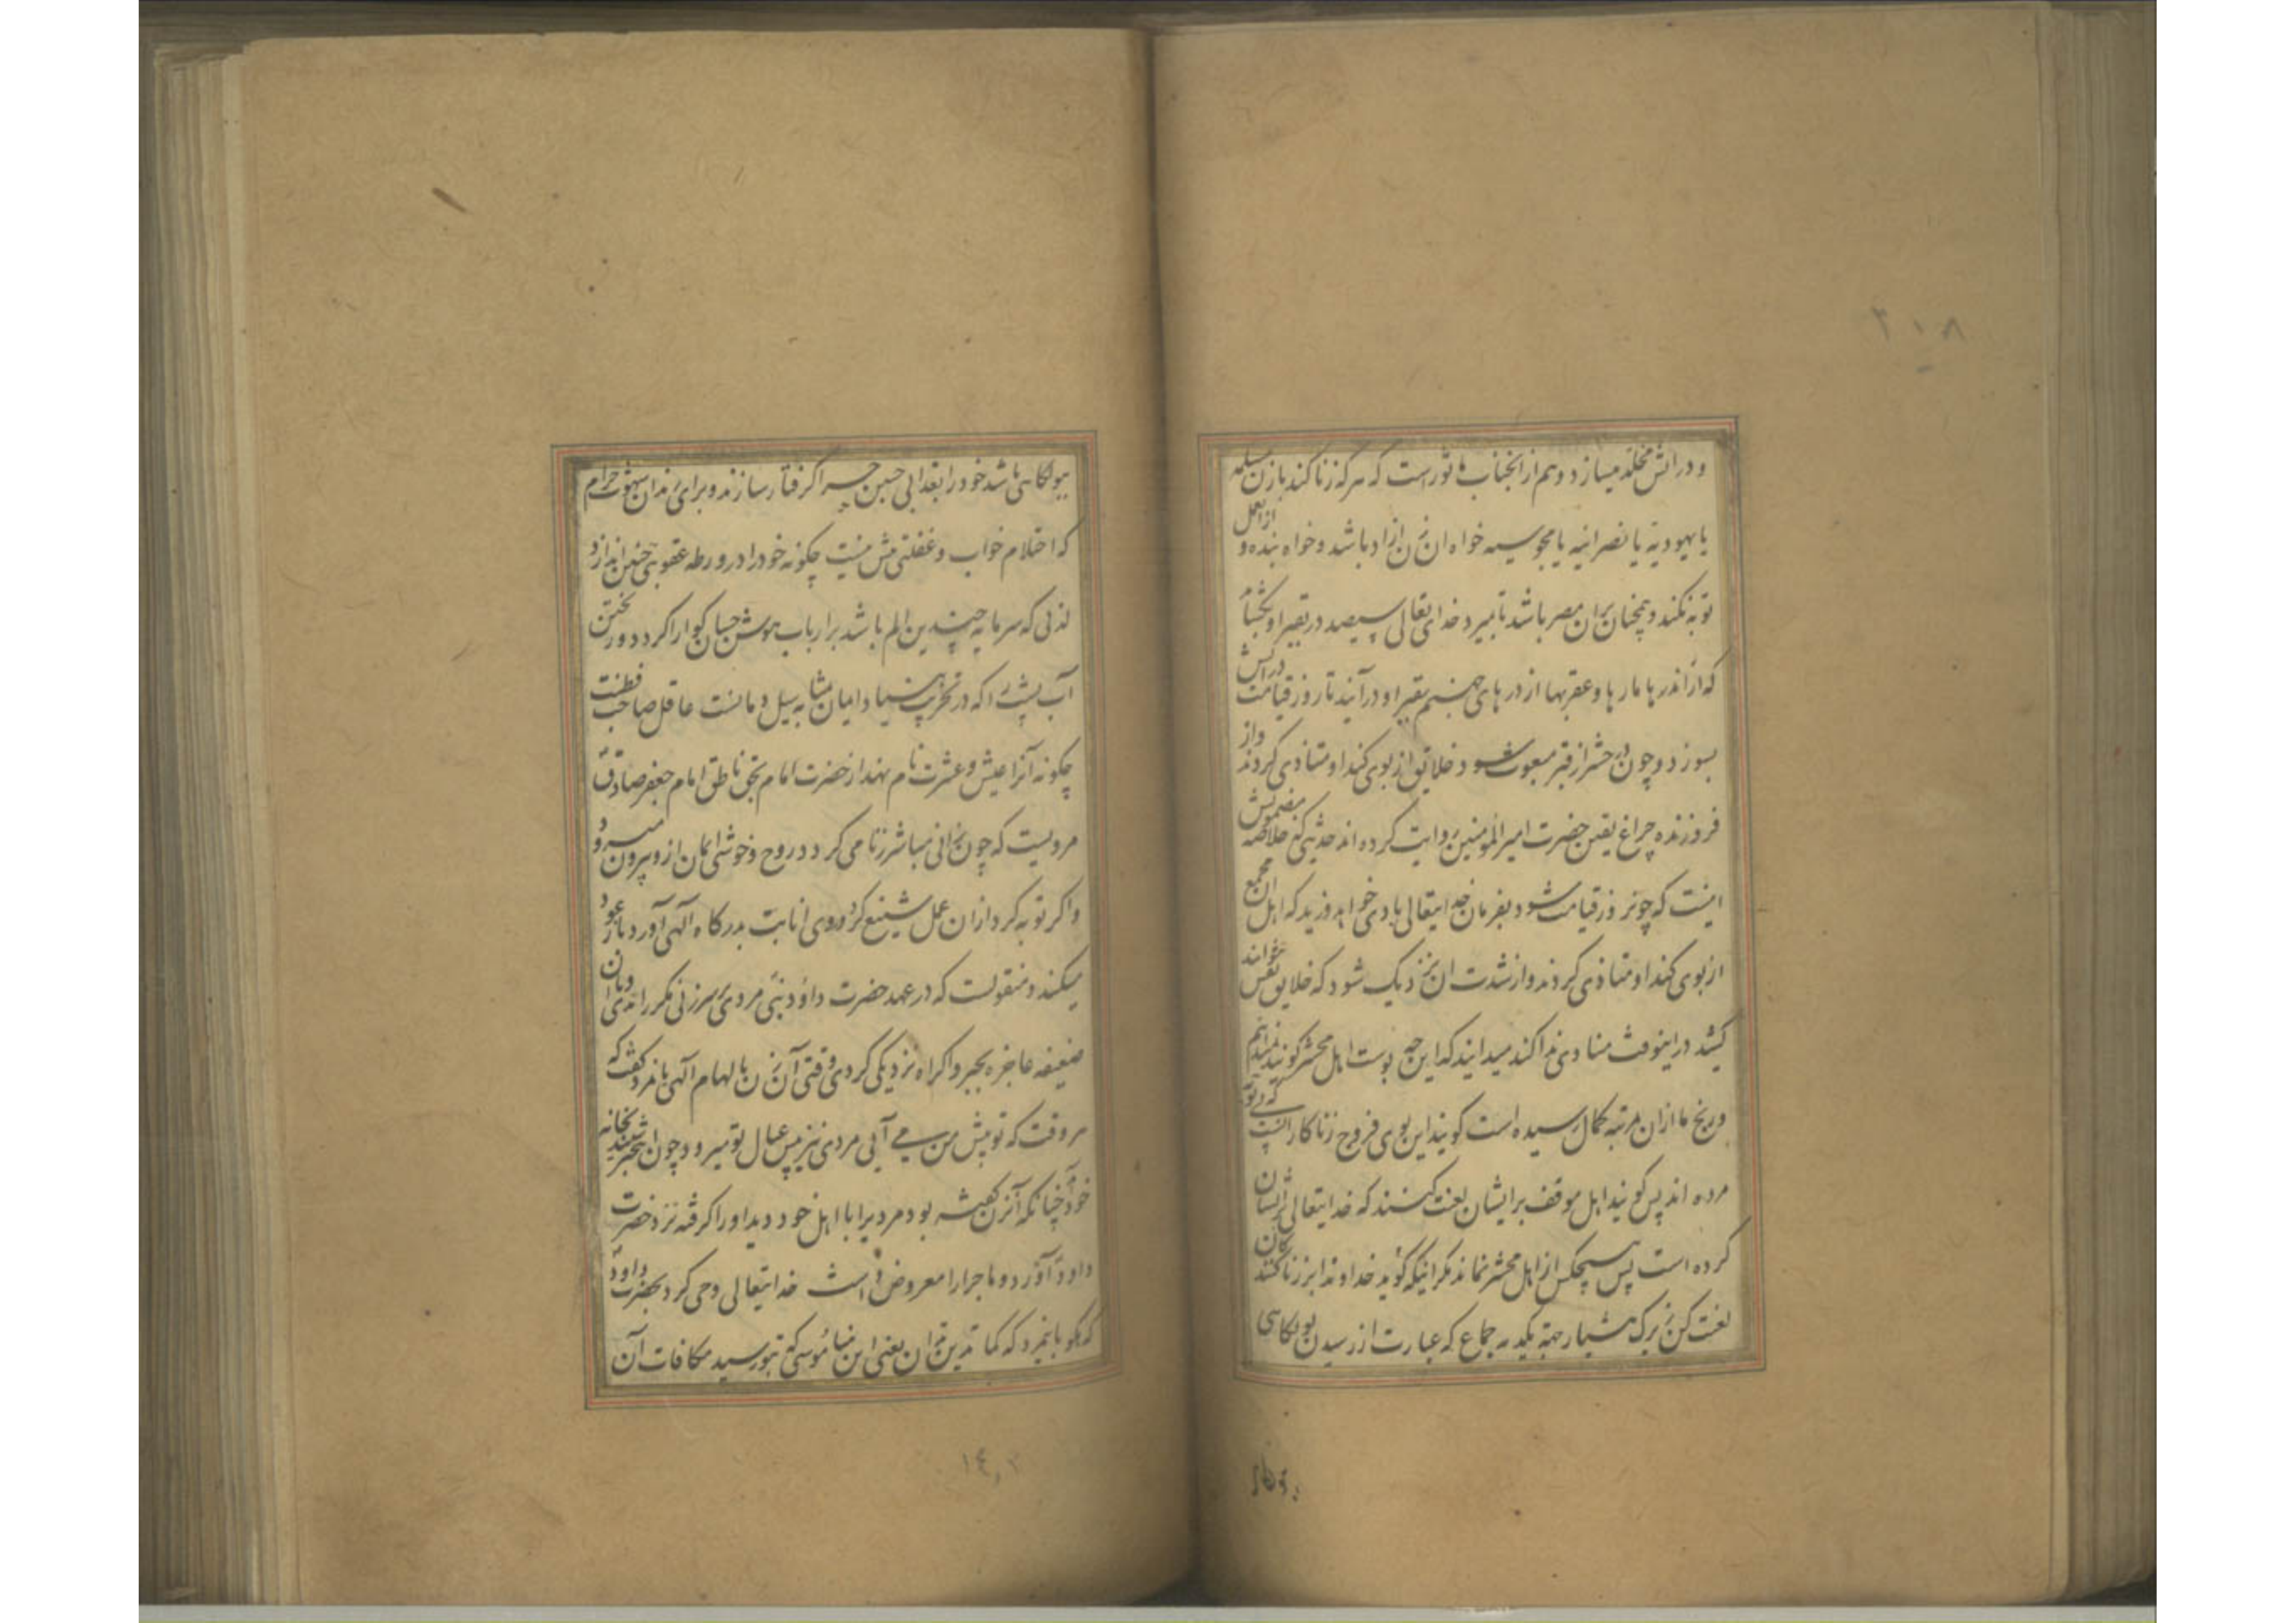 ۳۱۸
و در آتش مخلد میسازد و هم از انجناب ماثورست که هرکه زنا کند بازن مسلمه
یا یهودیه یا نصرانیه یا مجوسیه خواه ان زن ازاد باشد و خواه بنده و ازان عمل
توبه نکند و همچنان بران مصر باشد تا بمیرد خدای تعالی سیصد در بقبر او بکشاید
که از آندرها مارها و عقربها از درهای جهنم بقبر او درآیند تا روز قیامت در آتش
بسوزد و چون در حشر از قبر مبعوث شود خلایق از بوی کند او متاذی کردند و از
فروزنده چراغ یقین حضرت امیرالمومنین روایت کرده اند حدیثی که خلاصه مضمونش
اینست که چون روز قیامت شود بفرمان خدایتعالی بادی خواهد وزید که اهل ان مجمع
از بوی کند او متاذی کردند و از شدت ان نزدیک شود که خلایق نفس نتوانند
کشید در اینوقت منادی ندا کند میدانید که این چه بوست اهل محشر کویند نمیدانیم
و رنج ما ازان مرتبه کمال رسیده است کویند این بوی فروج زناکارانست که بی توبه
مرده اند پس کویند اهل موقف بر ایشان لعنت کنند که خدایتعالی بر ایشان
کرده است پس هیچکس از اهل محشر نماند مکر اینکه کوید خداوندا بر زناکنندکان
لعنت کن زیرک هشیار جهة یکدمه جماع که عبارت از رسیدن بولکاهی
ببولکاهی باشد خود را بعذابی چنین چرا کرفتار سازند و برای رندان شهوت حرام
که احتلام خواب و غفلتی بیش نیست چکونه خود را در ورطه عقوبتی چنین اندازد
لذتی که سرمایه چندین الم باشد بر ارباب هوش چسان کوارا کردد و ریختن
آب پشت را که در تخریب بنیاد ایمان مشابه سیل دمانست عاقل صاحب فطنت
چکونه آنرا عیش و عشرت نام نهد از حضرت امام بحق ناطق امام جعفر صادق
مرویست که چون زانی مباشر زنا می کردد روح و خوشی ایمان از و بیرون میرود
و اکر توبه کرد ازان عمل شنیع کرد و روی انابت بدرکاه آلهی آورد باز عود
میکند و منقولست که در عهد حضرت داود نبی مردی بر سر زنی مکرر امدی و با ان
ضعیفه عاجزه بجبر و اکراه نزدیکی کردی وقتی آن زن بالهام آلهی بانمرد کفت که
هر وقت که تو پیش من می آیی مردی نیز پیش عیال تو میرود چون ان شخص بخانه
خود چنانکه آنزن کفته بود مردیرا با اهل خود دید او را کرفته نزد حضرت
داود آورد و ماجرا را معروض داشت خدایتعالی وحی کرد بحضرت داود
که بکو بانمرد که کما تدین تدان یعنی این بیناموسی که بتو رسید مکافات آن